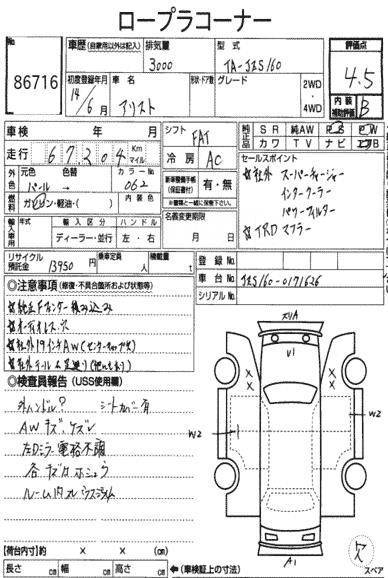 ロープラコーナー
No.
86716
車歴 (自家用以外は記入)
排気量
3000
型式
TA-JZS160
評価点
4.5
内装
補助評価
B
初度登録年月
14年 6月
車名
アリスト
形状・ドア数
グレード
2WD
・
4WD
車検 年 月
走行 67304 Km マイル
シフト FAT
冷房 AC
純正品 SR 純AW PS PW
カワ TV ナビ エアB
外色 元色 パール → 色替
カラーNo. 062
内装色
燃料 ガソリン・軽油・( )
新車整備手帳 (保証書付) 有・無
※書類と一緒に保管下さい。
セールスポイント
☆社外 スーパーチャージャー
インタークーラー
パワーフィルター
☆TRD マフラー
輸入車用 年式 輸入区分 ハンドル
ディーラー・並行 左・右
名義変更期限
月 日
リサイクル預託金 13950 円
乗車定員 人
積載量 t
登録No.
車台No. JZS160-0171626
シリアルNo.
◎注意事項 (修復・不具合箇所および状態等)
☆オーディオレス
☆社外19インチAW
◎検査員報告 (USS使用欄)
シートカバー有
AW キズ、
左Dミラー電格不調
各キズ
ルーム内
スリA
V1
W2
W2
A1
スペア
【荷台内寸】 × × (cm)
長さ cm 幅 cm 高さ cm
(車検証上の寸法)